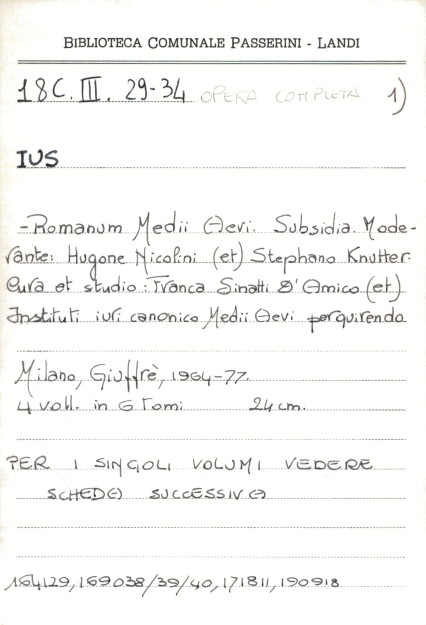 BIBLIOTECA COMUNALE PASSERINI - LANDI
18C. III. 29-34 OPERA COMPLETA 1)
IUS
- Romanum Medii Aevi. Subsidia. Mode-
rante: Hugone Nicolini (et) Stephano Knutter.
Cura et studio: Franca Sinatti D'Amico (et)
Instituti iuri canonico Medii Aevi perquirendo
Milano, Giuffrè, 1964-77.
4 voll. in 6 Tomi 24 cm.
PER I SINGOLI VOLUMI VEDERE
SCHEDE SUCCESSIVE
164129, 169038/39/40, 171811, 190918